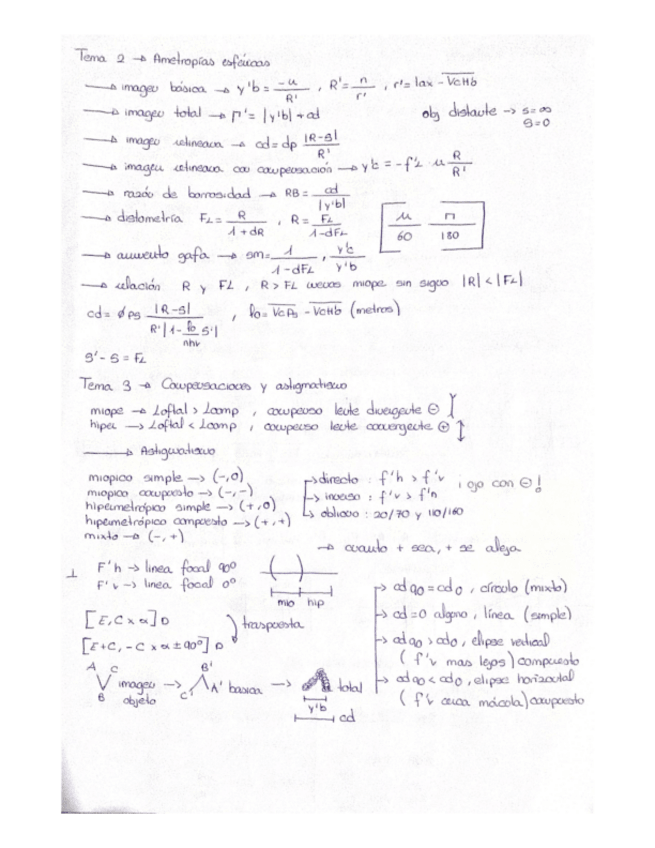 Tema 2 → Ametropías esféricas
→ imagen básica → y'b = -u / R' , R' = n / r' , r' = lax - VcHb
→ imagen total → n' = |y'b| + cd obj distante → s=∞ S=0
→ imagen retineana → cd = dp |R-S| / R'
→ imagen retineana con compensación → y'c = -f'L u R / R'
→ razón de borrosidad → RB = cd / |y'b|
→ distometría FL = R / 1+dR , R = FL / 1-dFL u n / 60 180
→ aumento gafa → sm = 1 / 1-dFL , y'c / y'b
→ relación R y FL , R > FL menos miope sin signo |R| < |FL|
cd = ϕPS |R-S| / R' |1 - lo/nhv S'| , lo = VcPs - VcHb (metros)
S' - S = FL
Tema 3 → Compensaciones y astigmatismo
miope → Loftal > Lcomp , compenso lente divergente ⊖
hiper → Loftal < Lcomp , compenso lente convergente ⊕
→ Astigmatismo
miopico simple → (-,0)
miopico compuesto → (-,-)
hipermetrópico simple → (+,0)
hipermetrópico compuesto → (+,+)
mixto → (-,+)
→ directo : f'h > f'v ¡ ojo con ⊖ !
→ inverso : f'v > f'h
→ oblicuo : 20/70 y 110/160
→ cuanto + sea, + se aleja
⊥ F'h → linea focal 90º
F'v → linea focal 0º
mio hip
[E, C x α] D
traspuesta
[E+C, -C x α ± 90º] D
A C B imagen objeto → B' C' A' basica → total
y'b
cd
→ cd90 = cd0 , círculo (mixto)
→ cd = 0 alguno , línea (simple)
→ cd90 > cd0, elipse vertical
( f'v mas lejos) compuesto
→ cd90 < cd0, elipse horizontal
( f'v cerca mácola) compuesto